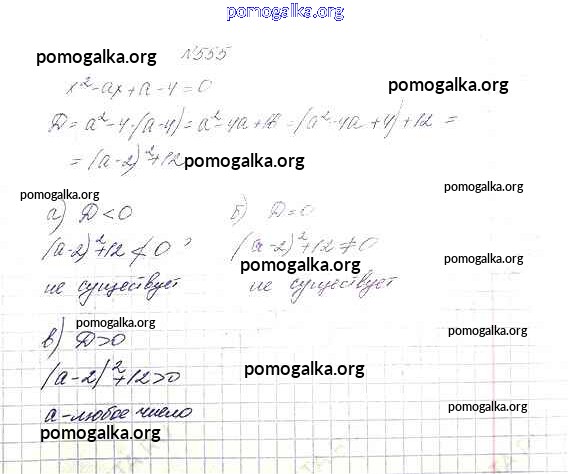 pomogalka.org
№555
pomogalka.org
x²-ax+a-4=0
pomogalka.org
D=a²-4·(a-4)=a²-4a+16=(a²-4a+4)+12=
=(a-2)²+12
pomogalka.org
pomogalka.org
pomogalka.org
а) D<0
б) D=0
(a-2)²+12≮0,
(a-2)²+12≠0
pomogalka.org
pomogalka.org
не существует
не существует
pomogalka.org
в) D>0
pomogalka.org
(a-2)²+12>0
pomogalka.org
a-любое число
pomogalka.org
pomogalka.org